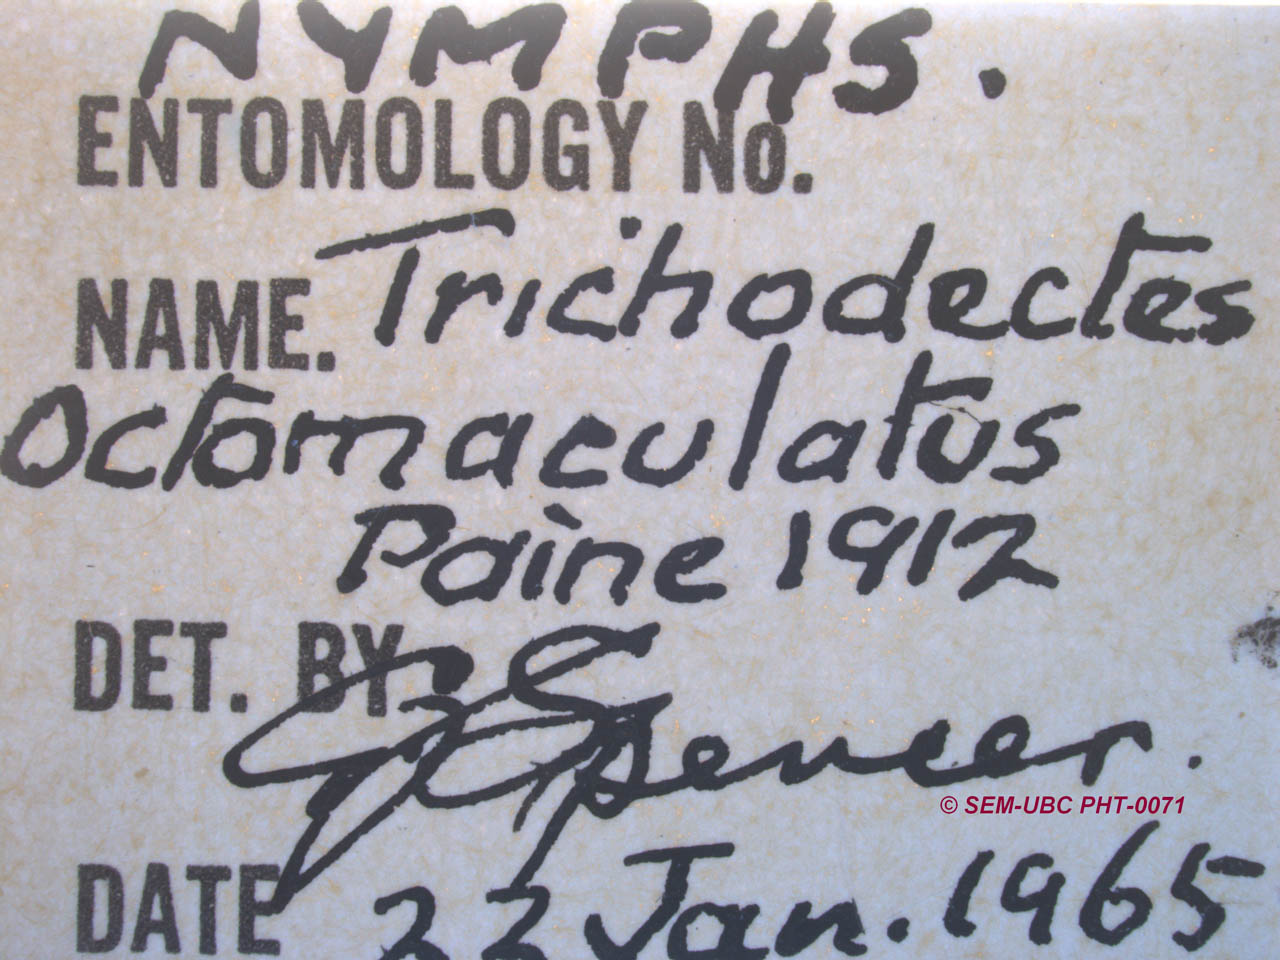 NYMPHS.
ENTOMOLOGY No.
NAME. Trichodectes
Octomaculatus
Paine 1912
DET. BY G J Spencer.
© SEM-UBC PHT-0071
DATE 22 Jan. 1965